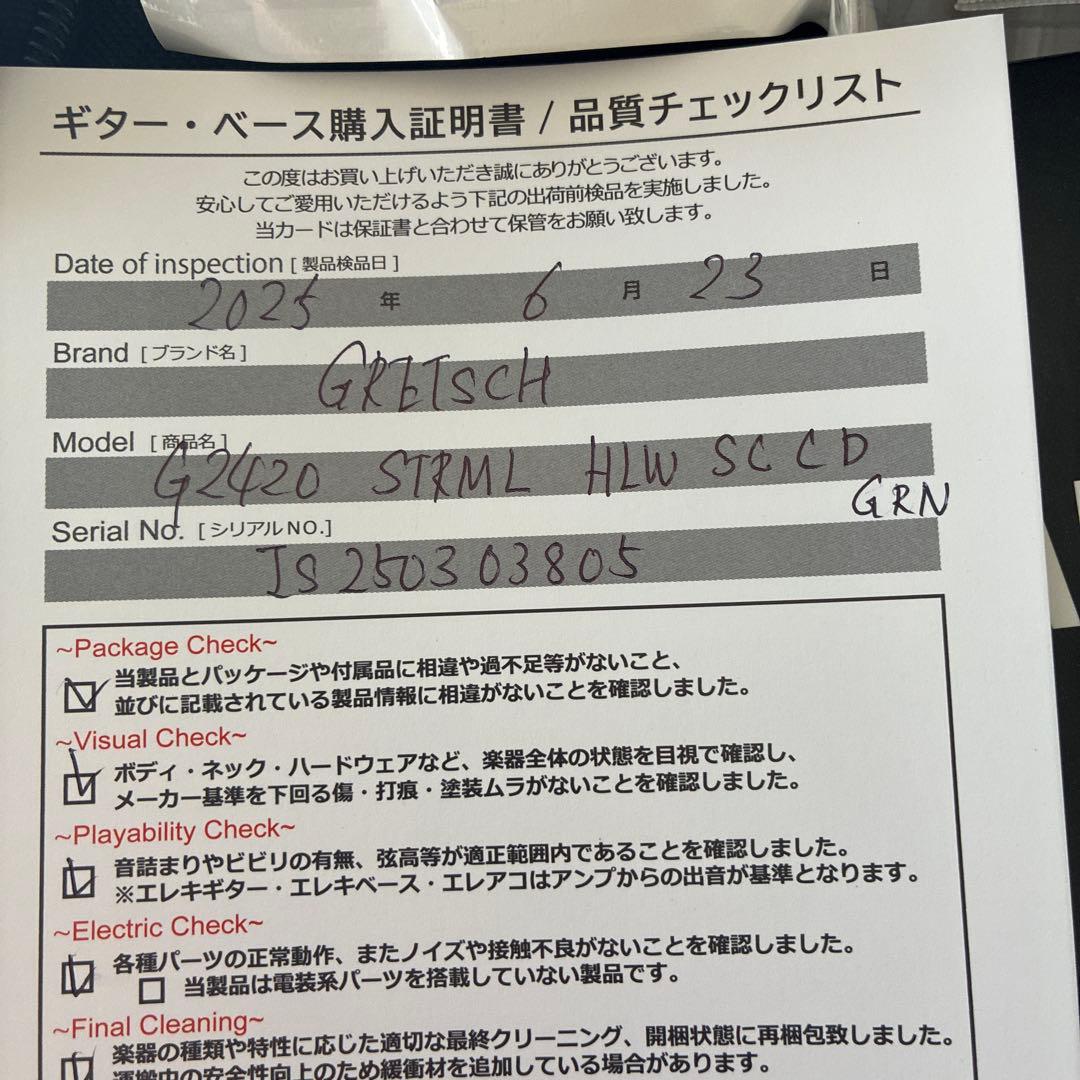 ギター・ベース購入証明書 / 品質チェックリスト
この度はお買い上げいただき誠にありがとうございます。
安心してご愛用いただけるよう下記の出荷前検品を実施しました。
当カードは保証書と合わせて保管をお願い致します。
Date of inspection [ 製品検品日 ]
2025 年 6 月 23 日
Brand [ ブランド名 ]
GRETSCH
Model [ 商品名 ]
G2420 STRML HLW SC CD
GRN
Serial No. [ シリアルNO.]
IS250303805
~Package Check~
当製品とパッケージや付属品に相違や過不足等がないこと、
並びに記載されている製品情報に相違がないことを確認しました。
~Visual Check~
ボディ・ネック・ハードウェアなど、楽器全体の状態を目視で確認し、
メーカー基準を下回る傷・打痕・塗装ムラがないことを確認しました。
~Playability Check~
音詰まりやビビリの有無、弦高等が適正範囲内であることを確認しました。
※エレキギター・エレキベース・エレアコはアンプからの出音が基準となります。
~Electric Check~
各種パーツの正常動作、またノイズや接触不良がないことを確認しました。
当製品は電装系パーツを搭載していない製品です。
~Final Cleaning~
楽器の種類や特性に応じた適切な最終クリーニング、開梱状態に再梱包致しました。
運搬中の安全性向上のため緩衝材を追加している場合があります。